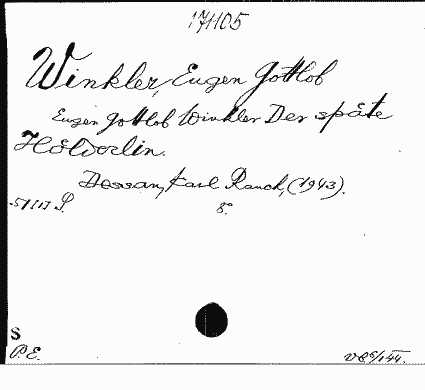 171105
Winkler, Eugen Gottlob
Eugen Gottlob Winkler Der späte
Hölderlin.
Dessau, Karl Rauch, (1943).
51117 S. 8.
S
P.E.